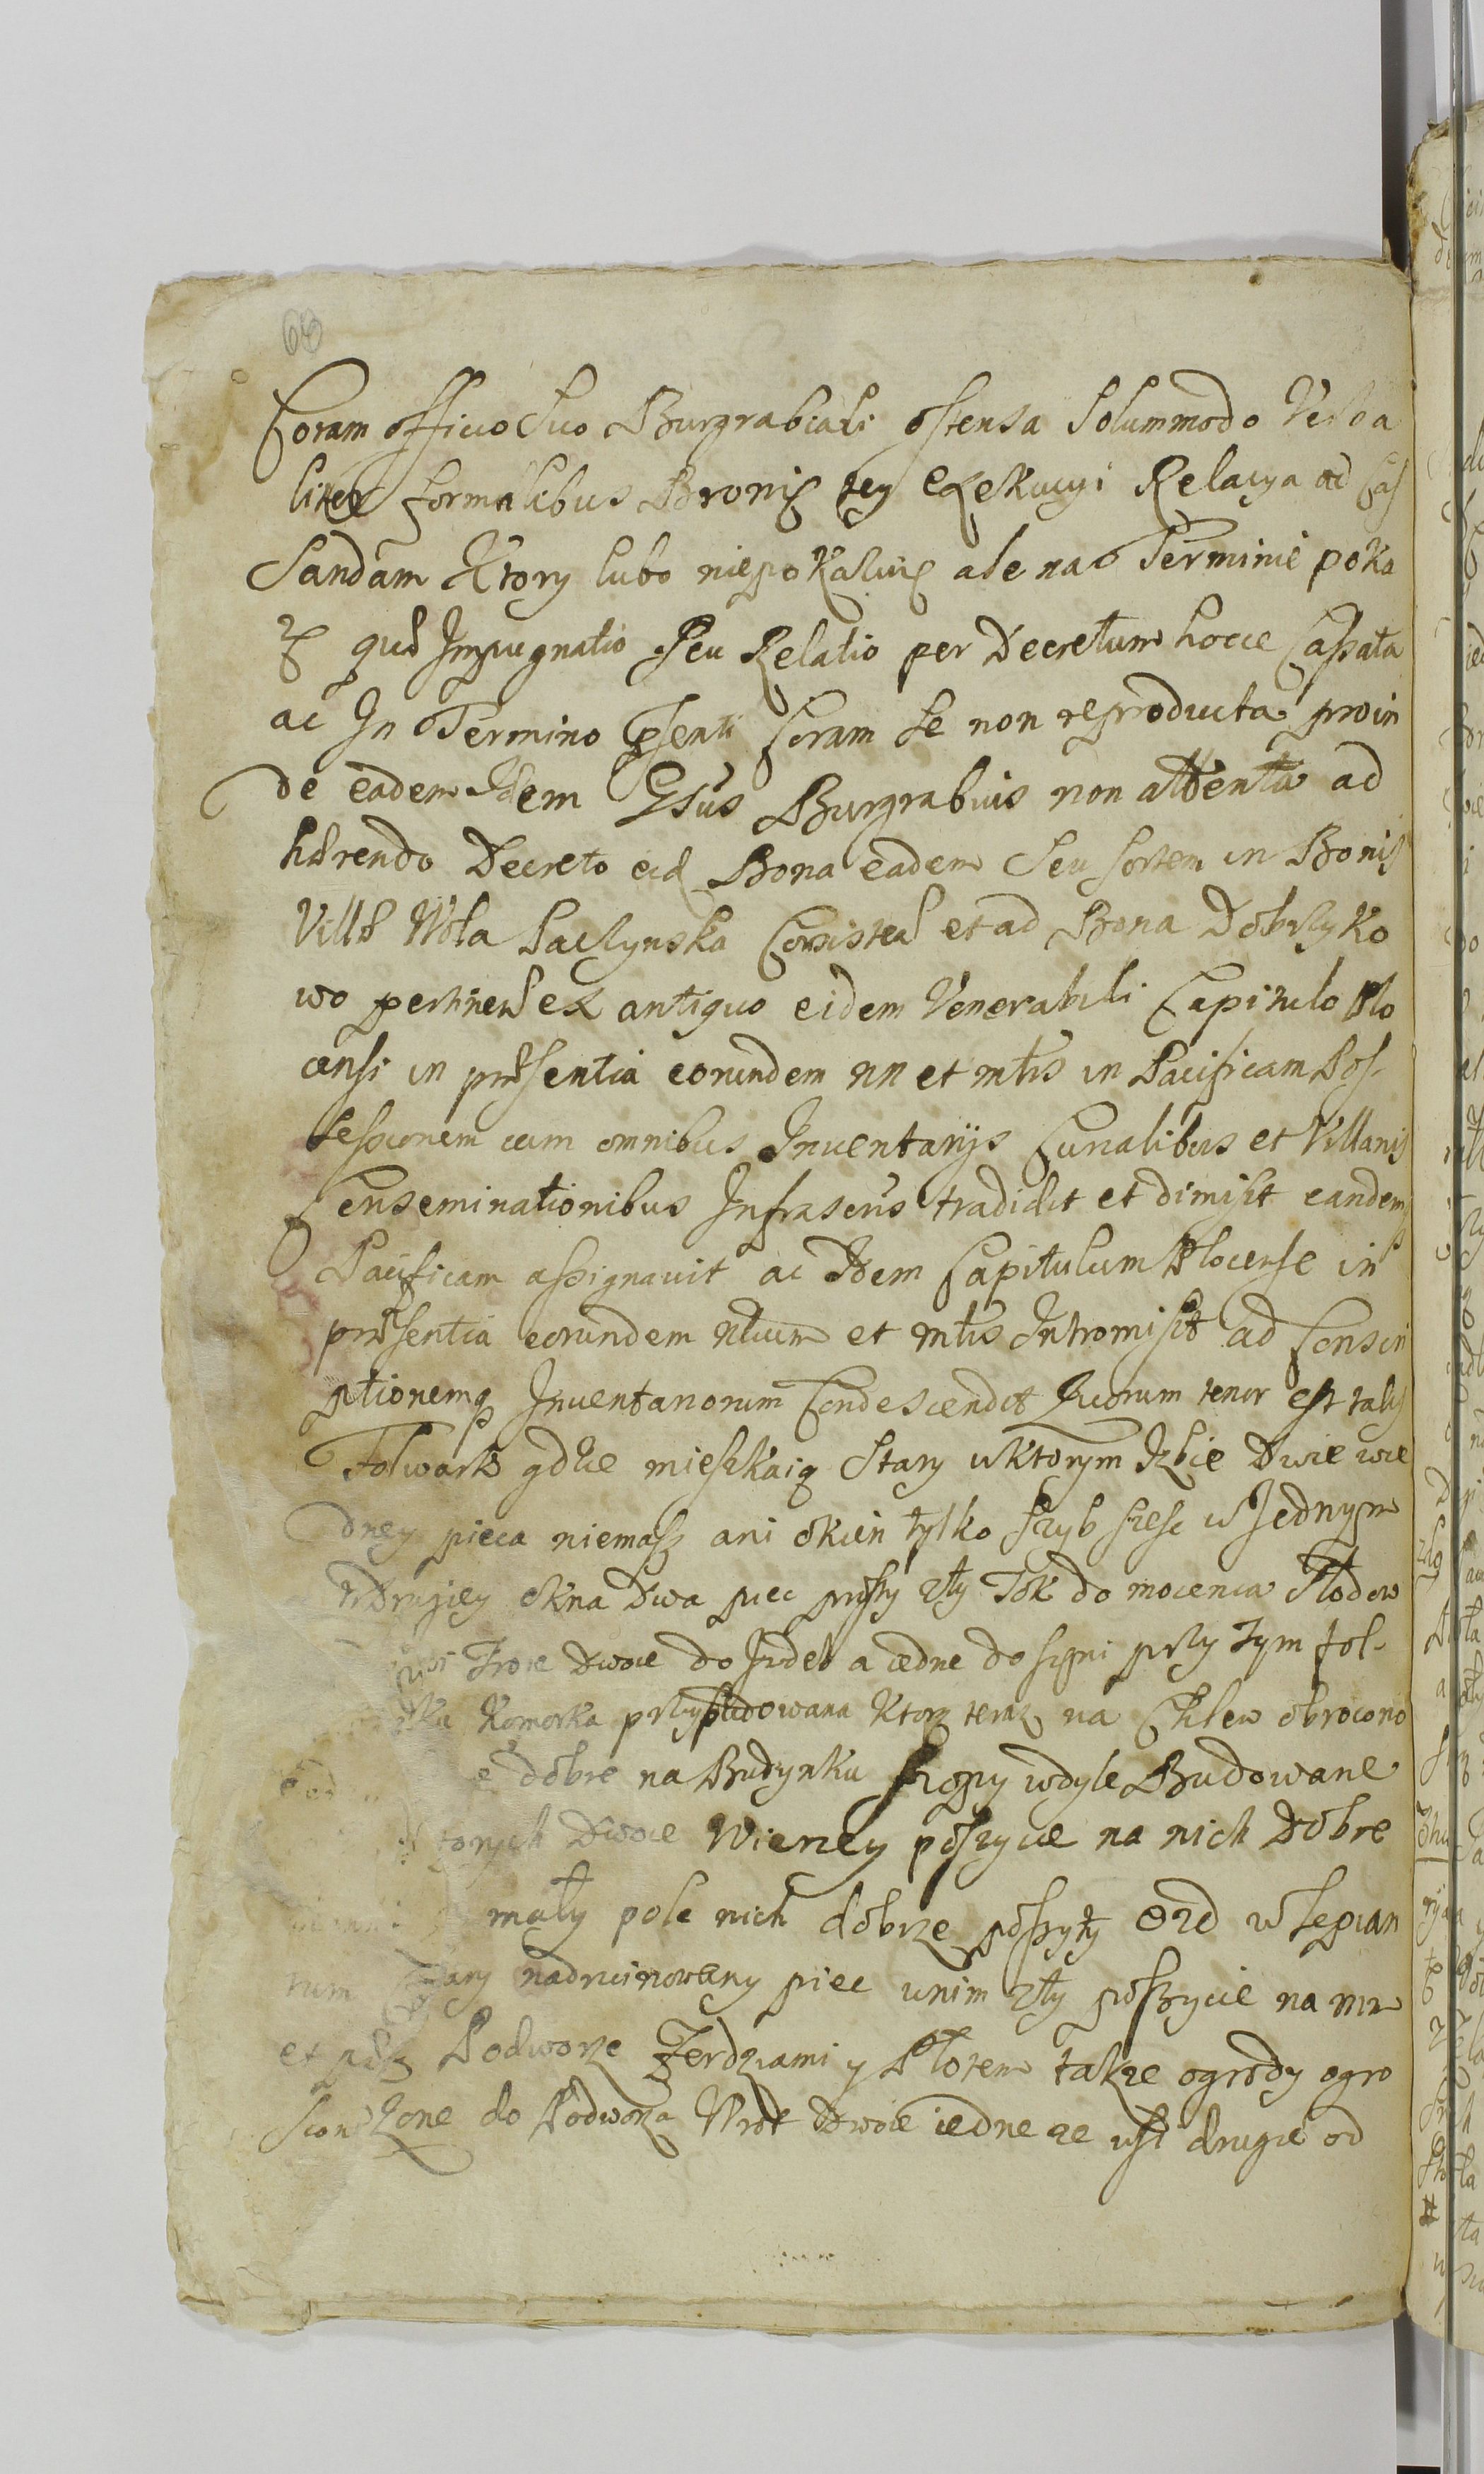 60
Coram officio Suo Burgrabiali ostensa Solummodo Verba
liter formalibus Bronię tey exekucyi Relacya ad Cas
Sandam Ktory lubo niepokazuię ale na Terminie poka
zę quæ Impugnatio Seu Relatio per Decretum hocce Cassata
ac In Termino pŝenti Coram se non reproducta proin
de eadem Idem Gŝus Burgrabius non attenta ad
hærendo Decreto eid Bona eadem Seu sortem in Bonis
Villæ Wola Paczynska Consisten et ad Bona Dobrzyko
wo pertinen ex antiquo eidem Venerabili Capitulo Plo
censi in præsentia eorundem nn et mtis in Pacificam Pos-
sessionem cum omnibus Inventarijs Curialibus et Villanis
Censeminationibus Infrascris tradidit et dimisit eandemq
Pacificam assignavit ac Idem Capitulum Plocense in
præsentia eorundem nlium et mtis Intromisit ad Conscri
ptionemq Inventariorum Condescendit Quorum tenor est talis
Folwark gdzie mieszkaią Stary wktorym Izbie Dwie wie
dney pieca niemasz ani okien tylko Szyb szesc w Jednym
wDrugiey okna Dwa piec prosty zły Tok do mocenia Słodow
Troie dwoie do Izdeb a iedne do sieni przy Tym fol-
ku Komorka przybudowana Ktorą teraz na Chlew obrocono
e dobre na Budynku Szopy wdyle Budowane
torych Dwoie Wierzey poszycie na nich Dobre
mały pole nich dobrze poszyty Ozd w Lepian
rum stary nadrujnowany piec wnim zły poszycie na nim
et Podworze Zerdziami y Płotem takze ogrody ogro
dzone do Podworza Wrot Dwoie iedne ze wsi drugie od